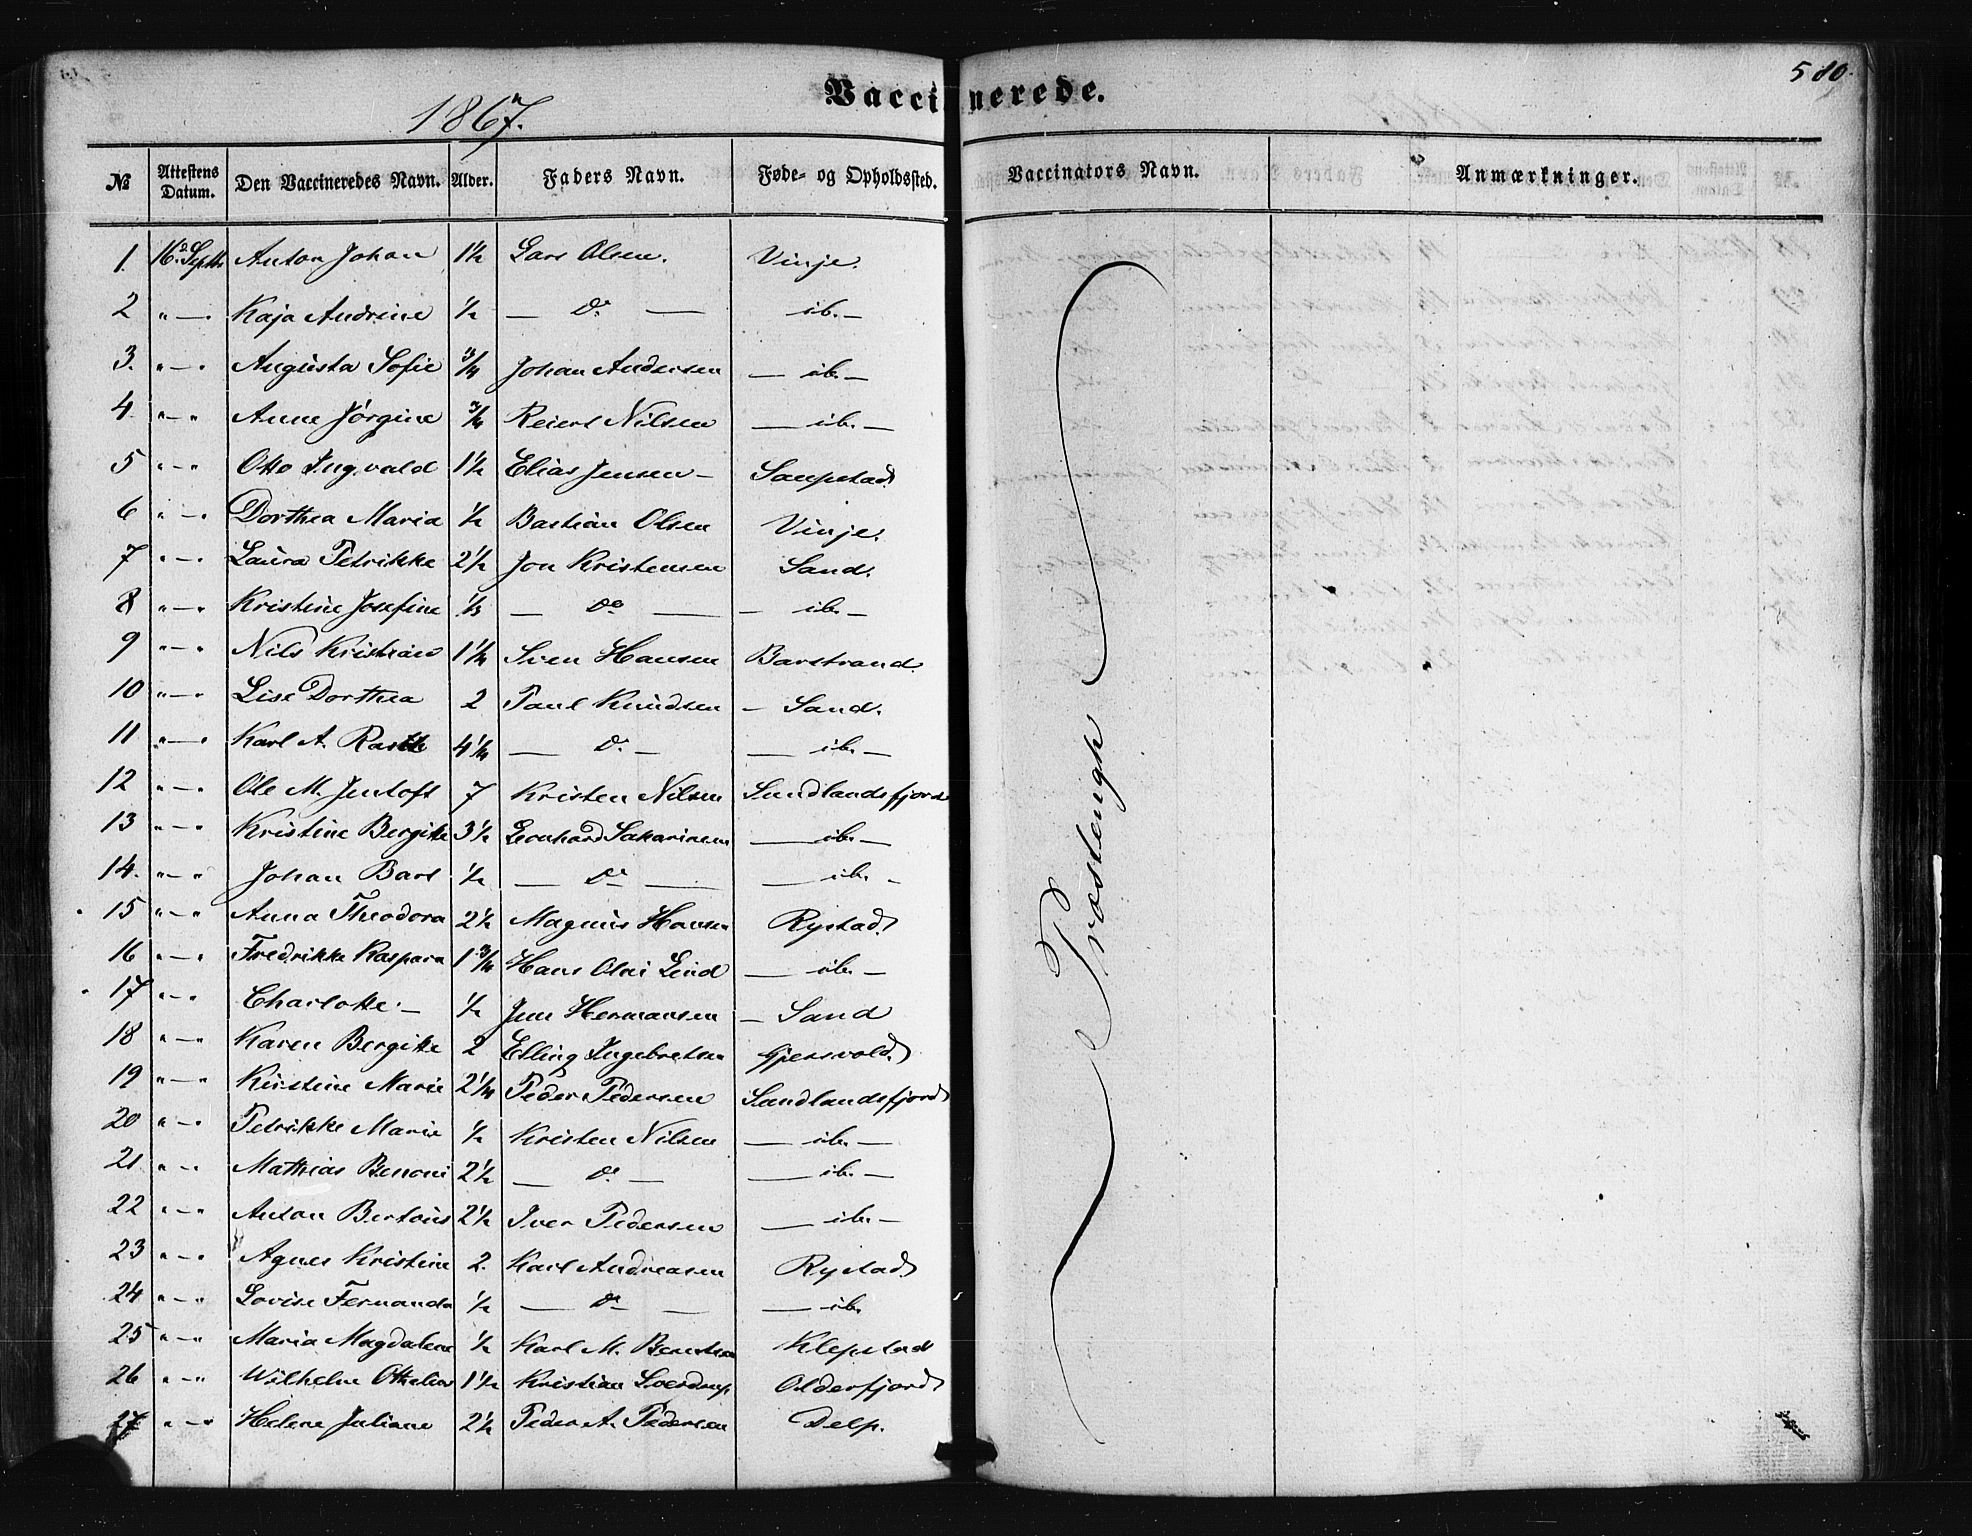 580.
Vaccinerede.
1867.
№ Attestens Datum. Den Vaccineredes Navn. Alder. Faders Navn. Føde- og Opholdssted. Vaccinators Navn. Anmærkninger.
1. 16. Septb. Anton Johan 1½ Lars Olsen. Vinje.
2 " — " Kaja Andrine ½ — Do — ib. —
3. " — " Augusta Sofie ¾ Johan Andersen — ib. —
4. " — " Anne Jørgine ¾ Reiert Nilsen — ib. —
5 " — " Otto Ingvald 1½ Elias Jensen —
6 " — " Dorthea Maria ½ Bastian Olsen Vinje.
7 " — " Laura Petrikke 2½ Jon Kristensen Sand.
8 " — " Kristine Josefine ⅓ — Do — — ib. —
9 " — " Nils Kristian 1¼ Sven Hansen Barstrand.
10 " — " Lise Dorthea 2 Paul Knudsen — Sand.
11 " — " Karl A. 4¼ — Do — — ib. —
12 " — " Ole M. Jentoft 7 Kristen Nilsen Sandlandsfjord
13 " — " Kristine Bergitte 3½ Leonhard Sakariasen — ib. —
14. " — " Johan Bart ½ — Do — — ib. —
15 " — " Anna Theodora 2½ Magnus Hansen Rystad.
16 " — " Fredrikke Kaspara 1¾ Hans Olai Lind — ib. —
17 " — " Charlotte — ½ Jens Hermansen — Sand
18 " — " Karen Bergitte 2 Elling Ingebretsen Gjersvold.
19 " — " Kirstine Marie 2¼ Peder Pedersen Sandlandsfjord
20 " — " Petrikke Marie ½ Kristen Nilsen — ib. —
21. " — " Mathias Benoni 2½ — Do — — ib. —
22 " — " Anton Bertous 2½ Iver Pedersen — ib. —
23 " — " Agnes Kristine 2. Karl Andreasen Rystad
24 " — " Lovise Fernanda ½ — Do — — ib.
25 " — " Maria Magdalene ½ Karl M. Berntsen Klepstad
26 " — " Wilhelm 1½ Kristian Sverdrup Olderfjord
27 " — " Helene Juliane 2½ Peder A. Pedersen Delp.